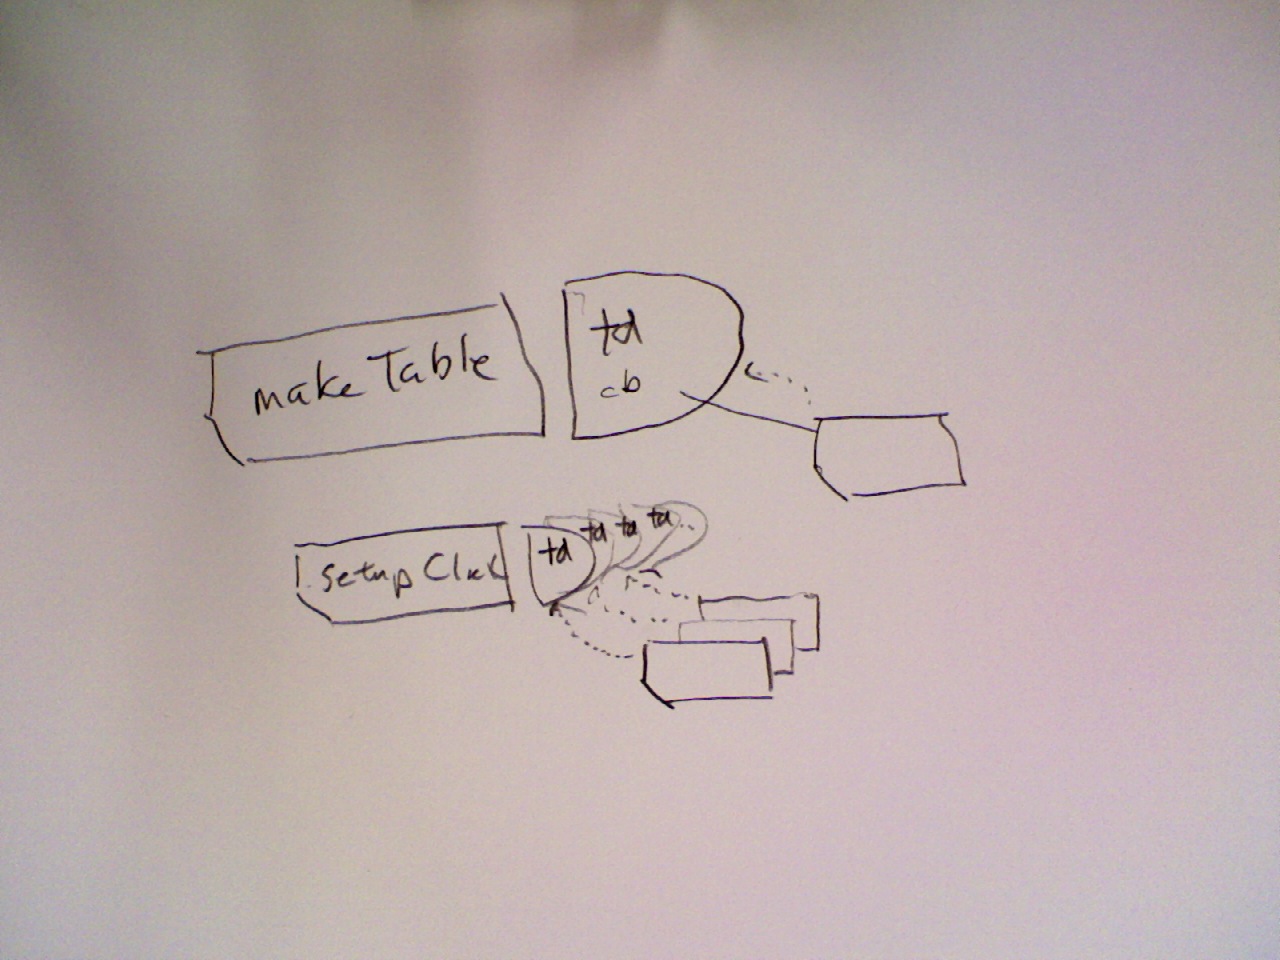 makeTable
td
cb
setupClick
td td td td...